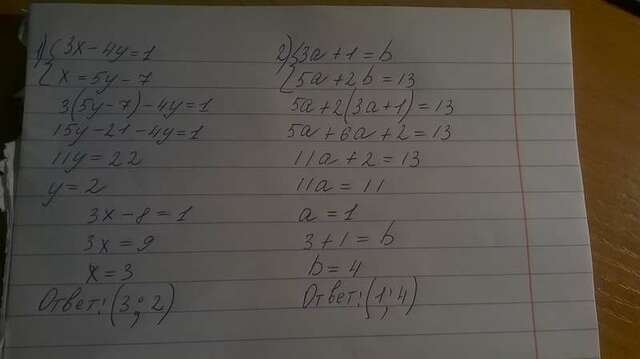 1) { 3x - 4y = 1
x = 5y - 7
3(5y - 7) - 4y = 1
15y - 21 - 4y = 1
11y = 22
y = 2
3x - 8 = 1
3x = 9
x = 3
Ответ: (3; 2)
2) { 3a + 1 = b
5a + 2b = 13
5a + 2(3a + 1) = 13
5a + 6a + 2 = 13
11a + 2 = 13
11a = 11
a = 1
3 + 1 = b
b = 4
Ответ: (1; 4)